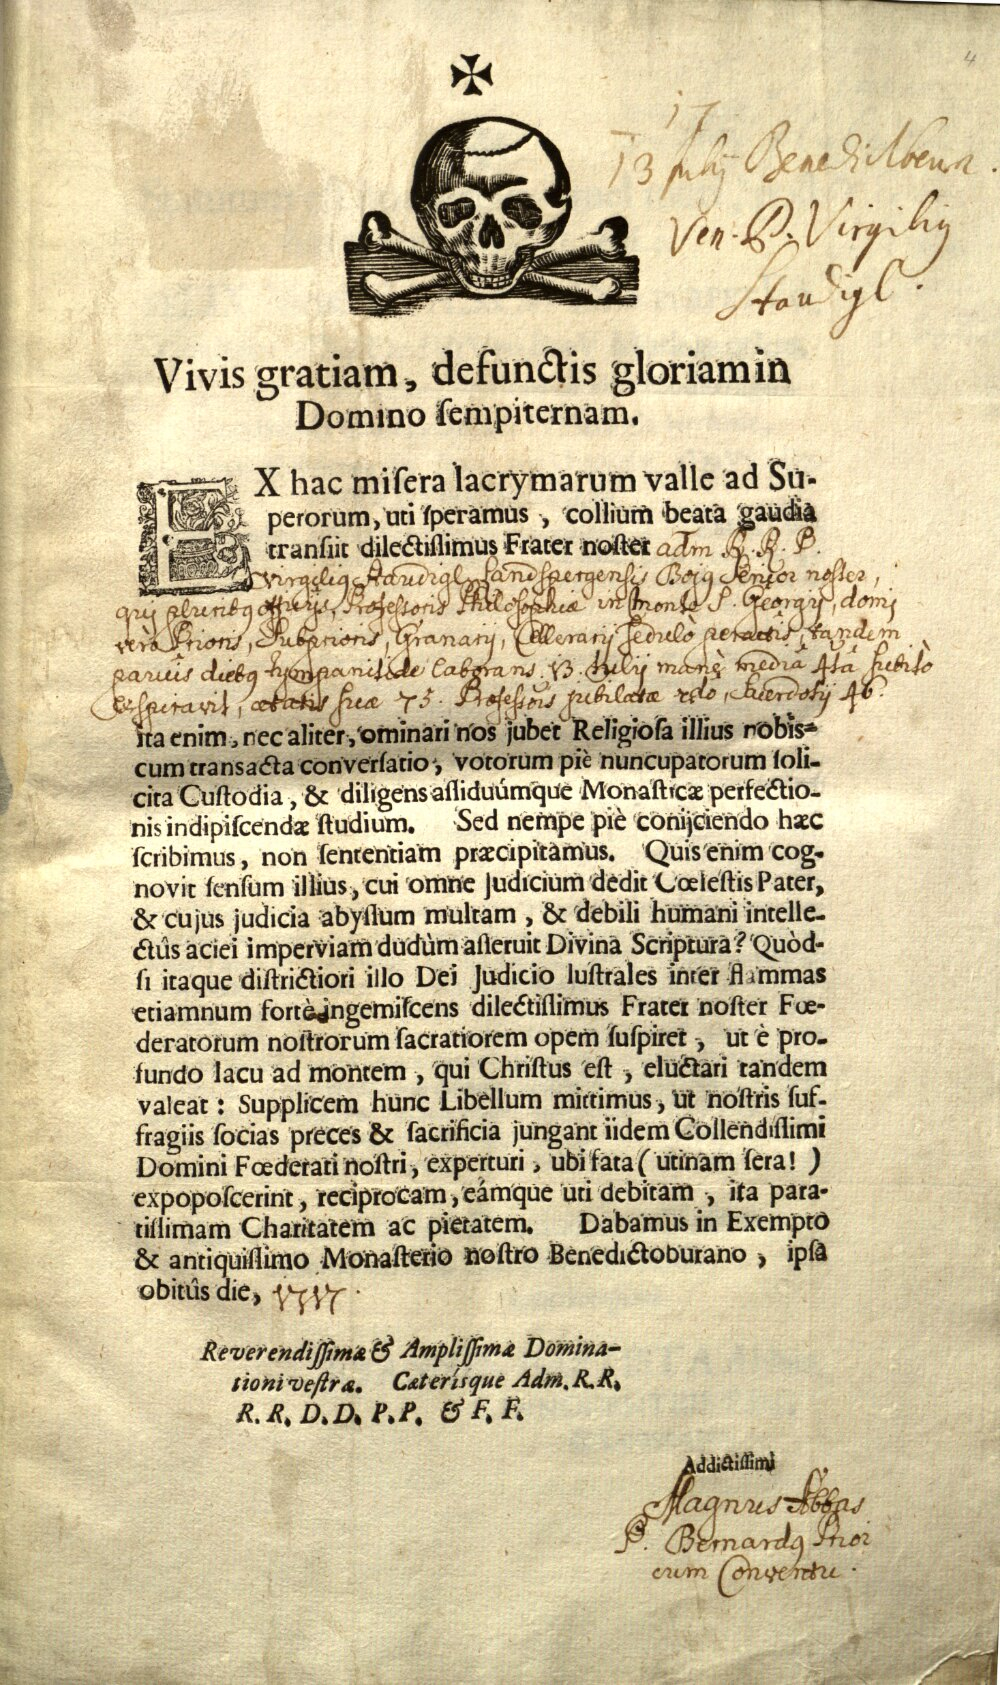 4
17
13 Julij Benedictbeura.
Ven. P. Virgilig
Staudigl.
Vivis gratiam, defunctis gloriam in
Domino ſempiternam.
EX hac miſera lacrymarum valle ad Su-
perorum, uti ſperamus, collium beata gaudia
tranſiit dilectiſſimus Frater noſter adm R. R. P.
Virgilig Staudigl, Landſpergenſis Bojg Senior noſter,
qui pluribg officijs, Profeſſoris Philoſophiæ in monte S. Georgij, domi
verò Prioris, Subprioris, Granarij, Cellerarij ſedulò peractis, tandem
paucis diebg tympanitide laborans 13. Julij manè mediâ 4tâ ſubitò
exſpiravit, ætatis ſuæ 75. Profeſſionis jubilatæ 2do, Sacerdotij 46.
ita enim, nec aliter, ominari nos jubet Religioſa illius nobis-
cum transacta converſatio, votorum piè nuncupatorum ſoli-
cita Cuſtodia, & diligens aſſiduúmque Monaſticæ perfectio-
nis indipiſcendæ ſtudium. Sed nempe piè conijciendo hæc
ſcribimus, non ſententiam præcipitamus. Quis enim cog-
novit ſenſum illius, cui omne Judicium dedit Cœleſtis Pater,
& cujus judicia abyſſum multam, & debili humani intelle-
ctûs aciei imperviam dudùm aſſeruit Divina Scriptura? Quòd-
ſi itaque diſtrictiori illo Dei Judicio luſtrales inter flammas
etiamnum fortè ingemiſcens dilectiſſimus Frater noſter Fœ-
deratorum noſtrorum ſacratiorem opem ſuſpiret, ut è pro-
fundo lacu ad montem, qui Chriſtus eſt, eluctari tandem
valeat: Supplicem hunc Libellum mittimus, ut noſtris ſuf-
fragiis ſocias preces & ſacrificia jungant iidem Collendiſſimi
Domini Fœderati noſtri, experturi, ubi fata (utinam ſera!)
expopoſcerint, reciprocam, eámque uti debitam, ita para-
tiſſimam Charitatem ac pietatem. Dabamus in Exempto
& antiquiſſimo Monaſterio noſtro Benedictoburano, ipſa
obitûs die, 1717.
Reverendiſſimæ & Ampliſſimæ Domina-
tioni veſtræ. Cæteriſque Adm. R.R.
R. R. D. D. P. P. & F. F.
Addictiſſimi
Magnus Abbas
P. Bernardg Prior
cum Conventu.